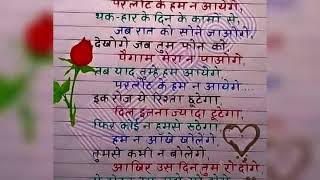 पर लौट के हम न आयेगे,
थक-हार के दिन के कामों से,
जब रात को सोने जाओगे,
देखोगे जब तुम फोन को,
पैगाम मेरा न पाओगे,
तब याद तुम्हे हम आयेगे,
पर लौट के हम न आयेगे....
इक रोज ये रिश्ता छूटेगा,
दिल इतना ज्यादा टूटेगा,
फिर कोई न हमसे रूठेगा,
हम न आँखे खोलेगे,
तुमसे कभी न बोलेगे,
आखिर उस दिन तुम रो दोगे